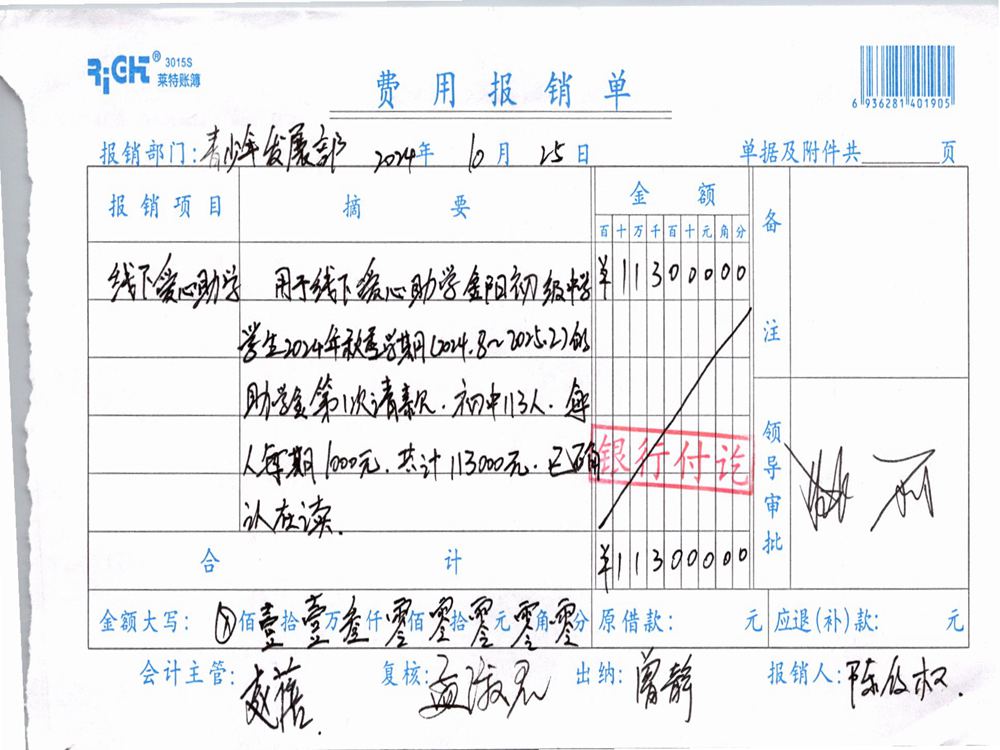 RiCH® 3015S
莱特账簿
费用报销单
6 936281 401905
报销部门:青少年发展部 2024年 10月 25日 单据及附件共 页
报销项目 摘要 金额 备注
百十万千百十元角分
线下爱心助学 用于线下爱心助学金阳初级中学 ¥11300000
学生2024年秋季学期(2024.8~2025.2)的
助学金第1次请款.初中113人.每
人每期1000元.共计113000元.已确
认在读.
银行付讫
领导审批
合计 ¥11300000
金额大写: ⊗佰壹拾壹万叁仟零佰零拾零元零角零分 原借款: 元 应退(补)款: 元
会计主管: 复核: 出纳:曾静 报销人:陈